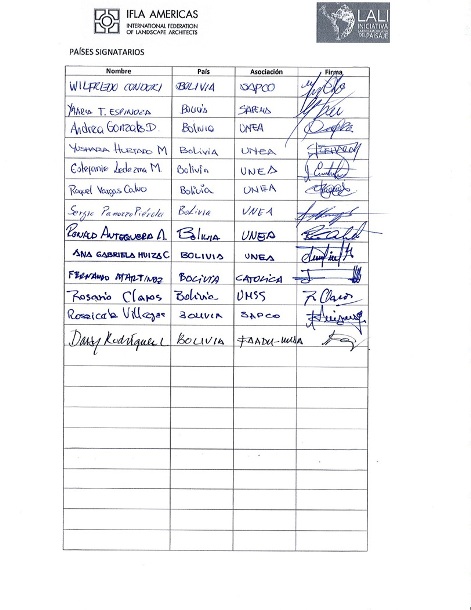 IFLA AMERICAS
INTERNATIONAL FEDERATION
OF LANDSCAPE ARCHITECTS
LALI
INICIATIVA
PAISAJE
PAÍSES SIGNATARIOS
Nombre País Asociación Firma
WILFREDO CONDORI BOLIVIA SAPCO
MARIA T. ESPINOZA
Andrea Gonzales D Bolivia UNEA
YUSHARA HURTADO M Bolivia UNEA
Estefanie Ledezma M Bolivia UNEA
Raquel Vargas Calvo Bolivia UNEA
Sergio Bolivia UNEA
RONALD ANTEQUERA A. BOLIVIA UNEA
ANA GABRIELA MUIZA C BOLIVIA UNEA
FERNANDO MARTINEZ BOLIVIA CATOLICA
Rosario Claros Bolivia UMSS R. Claros
Rosaicela Villegas BOLIVIA SAPCO
Daisy Rodríguez BOLIVIA